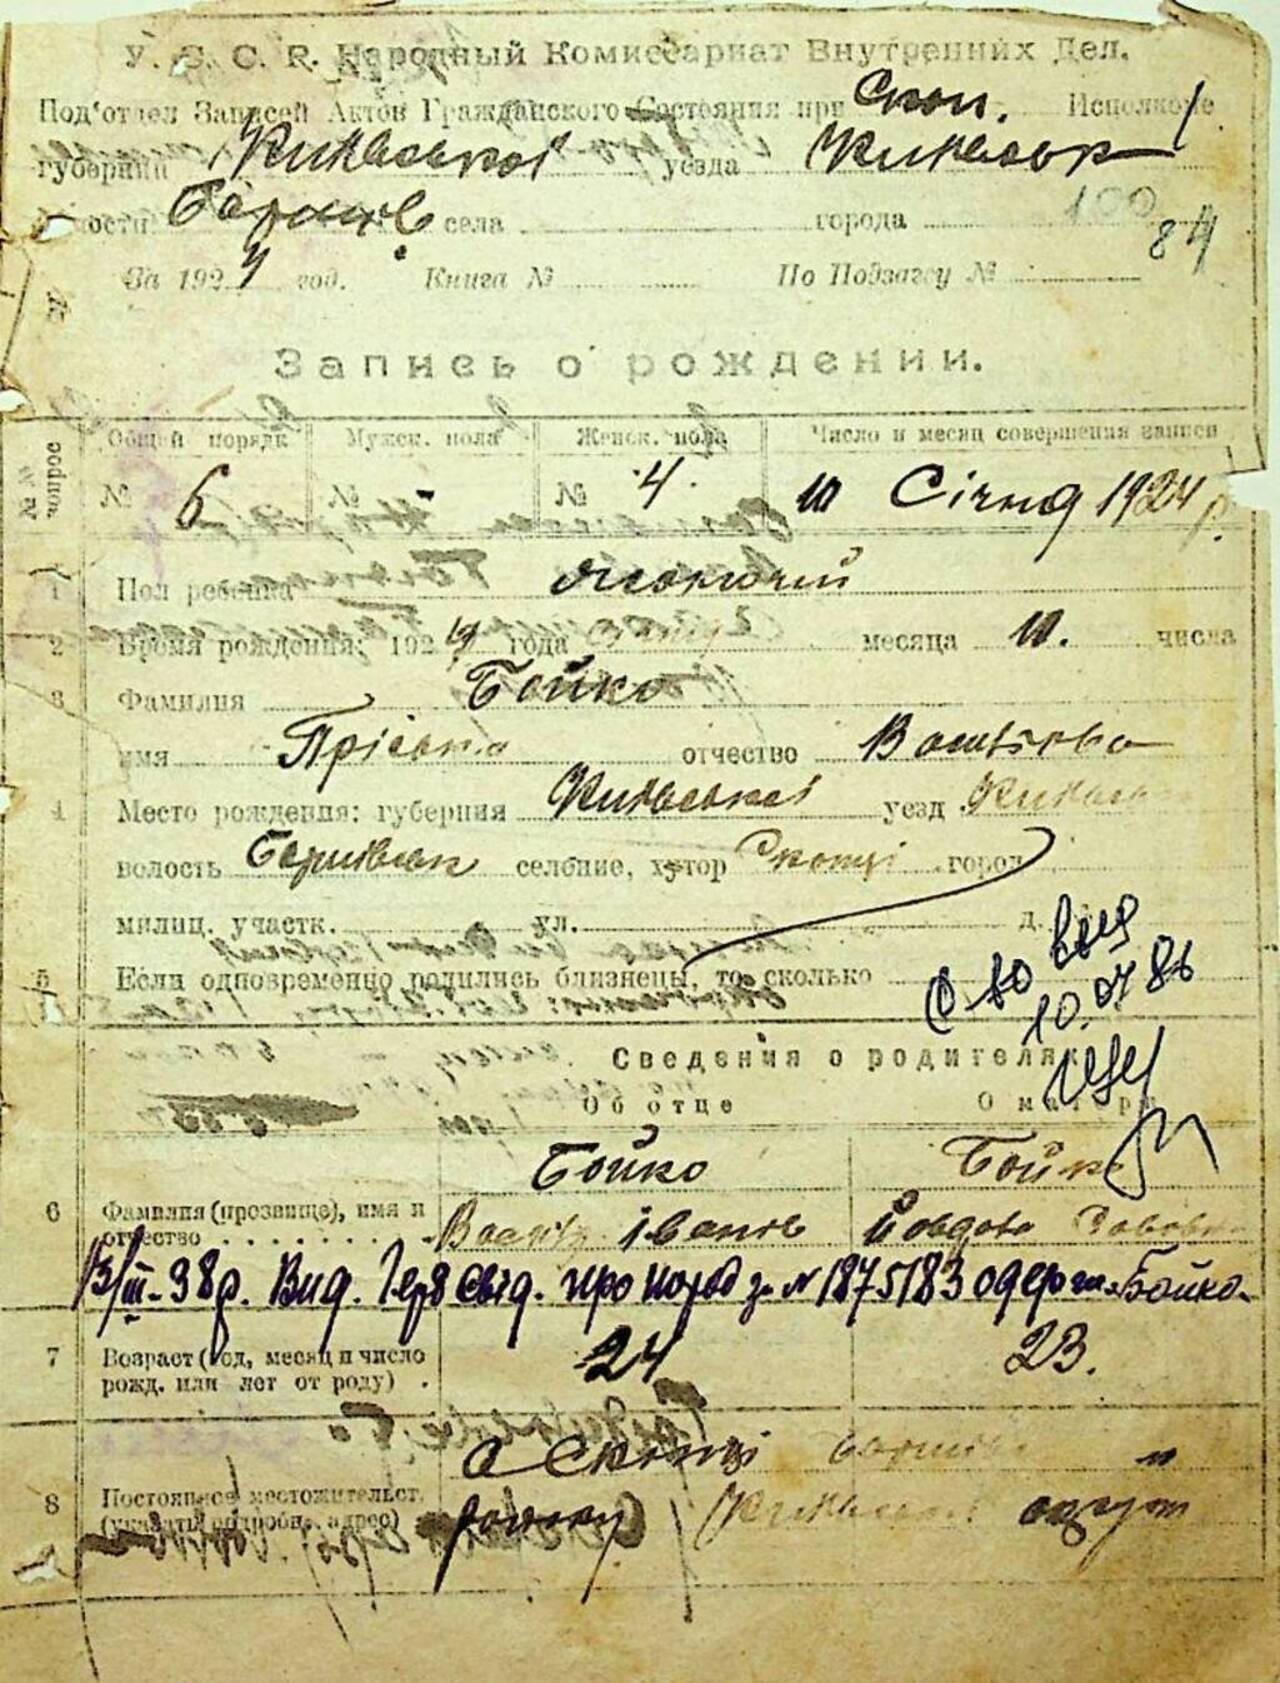 У. С. С. Р. Народный Комиссариат Внутренних Дел.
Под'отдел Записей Актов Гражданского Состояния при Скоп. Исполкоме
губернии Київської уезда Київськ
волости Баришів села города 100
84
За 1924 год. Книга № По Подзагсу №
Запись о рождении.
№№ вопрос
Общей порядк Мужск. пола Женск. пола Число и месяц совершения записи
№ 6 № - № 4. 10 Січня 1924 р.
1 Пол ребенка жіночий
2 Время рождения: 1924 года січня месяца 10. числа
3 Фамилия Бойко
имя Пріська отчество Васильова
4 Место рождения: губерния Київської уезд Київськ
волость Баришівськ селение, хутор Скопці город
милиц. участк. ул. д.
5 Если одновременно родились близнецы, то сколько
С-во выд
10.07.86
Сведения о родителях
Об отце О матери
Бойко Бойко
6 Фамилия (прозвище), имя и отчество Василь Іванів Йовдоха
13/III-38р. Вид. свід. про народ за № 1875183 одерж. Бойко
7 Возраст (год, месяц и число рожд. или лет от роду) 24 23.
8 Постоянное местожительст. (указать подробн. адрес) с Скопці Баришів
району Київської округи